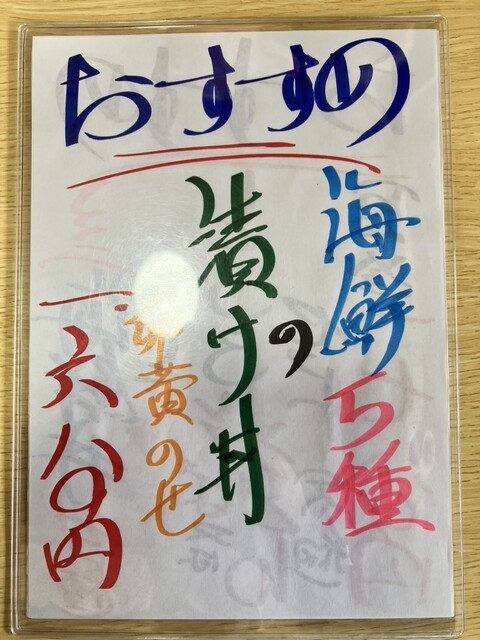 おすすめ
海鮮5種
の
漬け丼
卵黄のせ
一.六八〇円